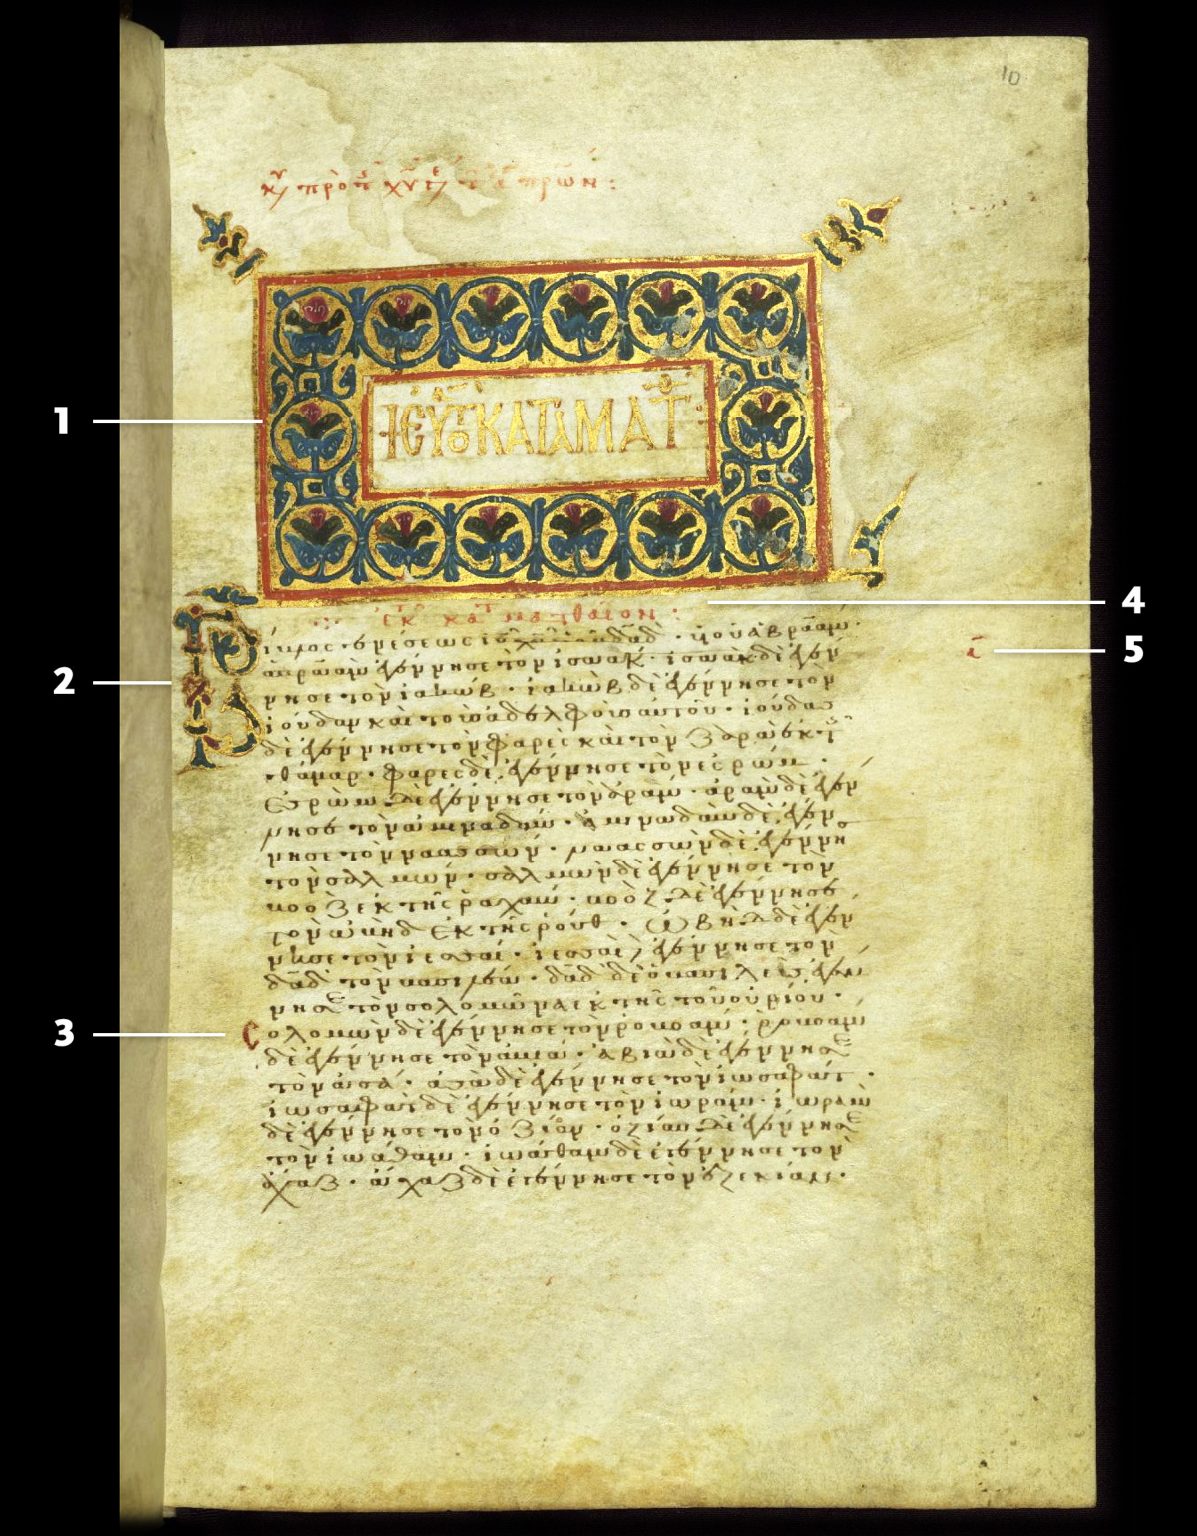 10
πρώτ
1
ΕΥ ΚΑΤΑ ΜΑΤ
4
ἐκ κατ ματθαῖον :
5
ίβλος γενέσεως ιυ χυ υυ δαδ · υιου αβραάμ ·
αβραὰμ ἐγέννησε τὸν ισαακ · ισαὰκ δὲ ἐγέν
2
νησε τὸν ιακώβ · ιακὼβ δὲ ἐγέννησε τὸν
ιούδαν καὶ τοὺς ἀδελφοὺς αυτοῦ · ιούδας
δὲ ἐγέννησε τὸν φαρὲς καὶ τὸν ζαρὰ ἐκ τ
θάμαρ · φαρες δὲ ἐγέννησε τὸν εσρώμ ·
Εσρὼμ δὲ ἐγέννησε τὸν ἀράμ · ἀρὰμ δὲ ἐγέν
νησε τὸν ἀμιναδάμ · ἀμιναδὰμ δὲ ἐγέν
νησε τὸν ναασσών · ναασσὼν δὲ ἐγέννη
τὸν σαλμών · σαλμὼν δὲ ἐγέννησε τὸν
βοὸζ ἐκ τῆς ραχάμ · βοὸζ δὲ ἐγέννησε
τὸν ὠβὴδ ἐκ τῆς ρούθ · ὠβὴδ δὲ ἐγέν
νησε τὸν ιεσσαί · ιεσσαὶ ἐγέννησε τὸν
δαδ τὸν βασιλέα · δαδ δὲ ὁ βασιλεὺς ἐγέν
νησε τὸν σολομῶνα ἐκ τῆς τοῦ ουρίου ·
3
Σολομὼν δὲ ἐγέννησε τὸν ροβοάμ · ροβοὰμ
δὲ ἐγέννησε τὸν ἀβιά · ἀβιὰ δὲ ἐγέννησε
τὸν ἀσά · ἀσὰ δὲ ἐγέννησε τὸν ιωσαφάτ ·
ιωσαφὰτ δὲ ἐγέννησε τὸν ιωράμ · ιωρὰμ
δὲ ἐγέννησε τὸν ὀζίαν · ὀζίας δὲ ἐγέννησε
τὸν ιωάθαμ · ιωάθαμ δὲ ἐγέννησε τὸν
ἄχαζ · ἄχαζ δὲ ἐγέννησε τὸν ἐζεκίαν ·